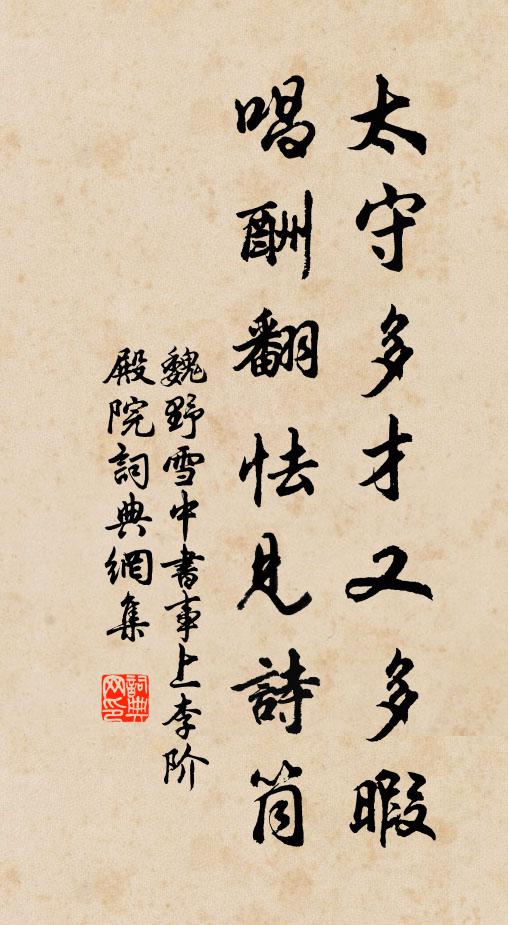 太守多才又多暇
唱酬翻怯見詩筒
魏野雪中書事上李阶
殿院詞典網集
詞典
网印